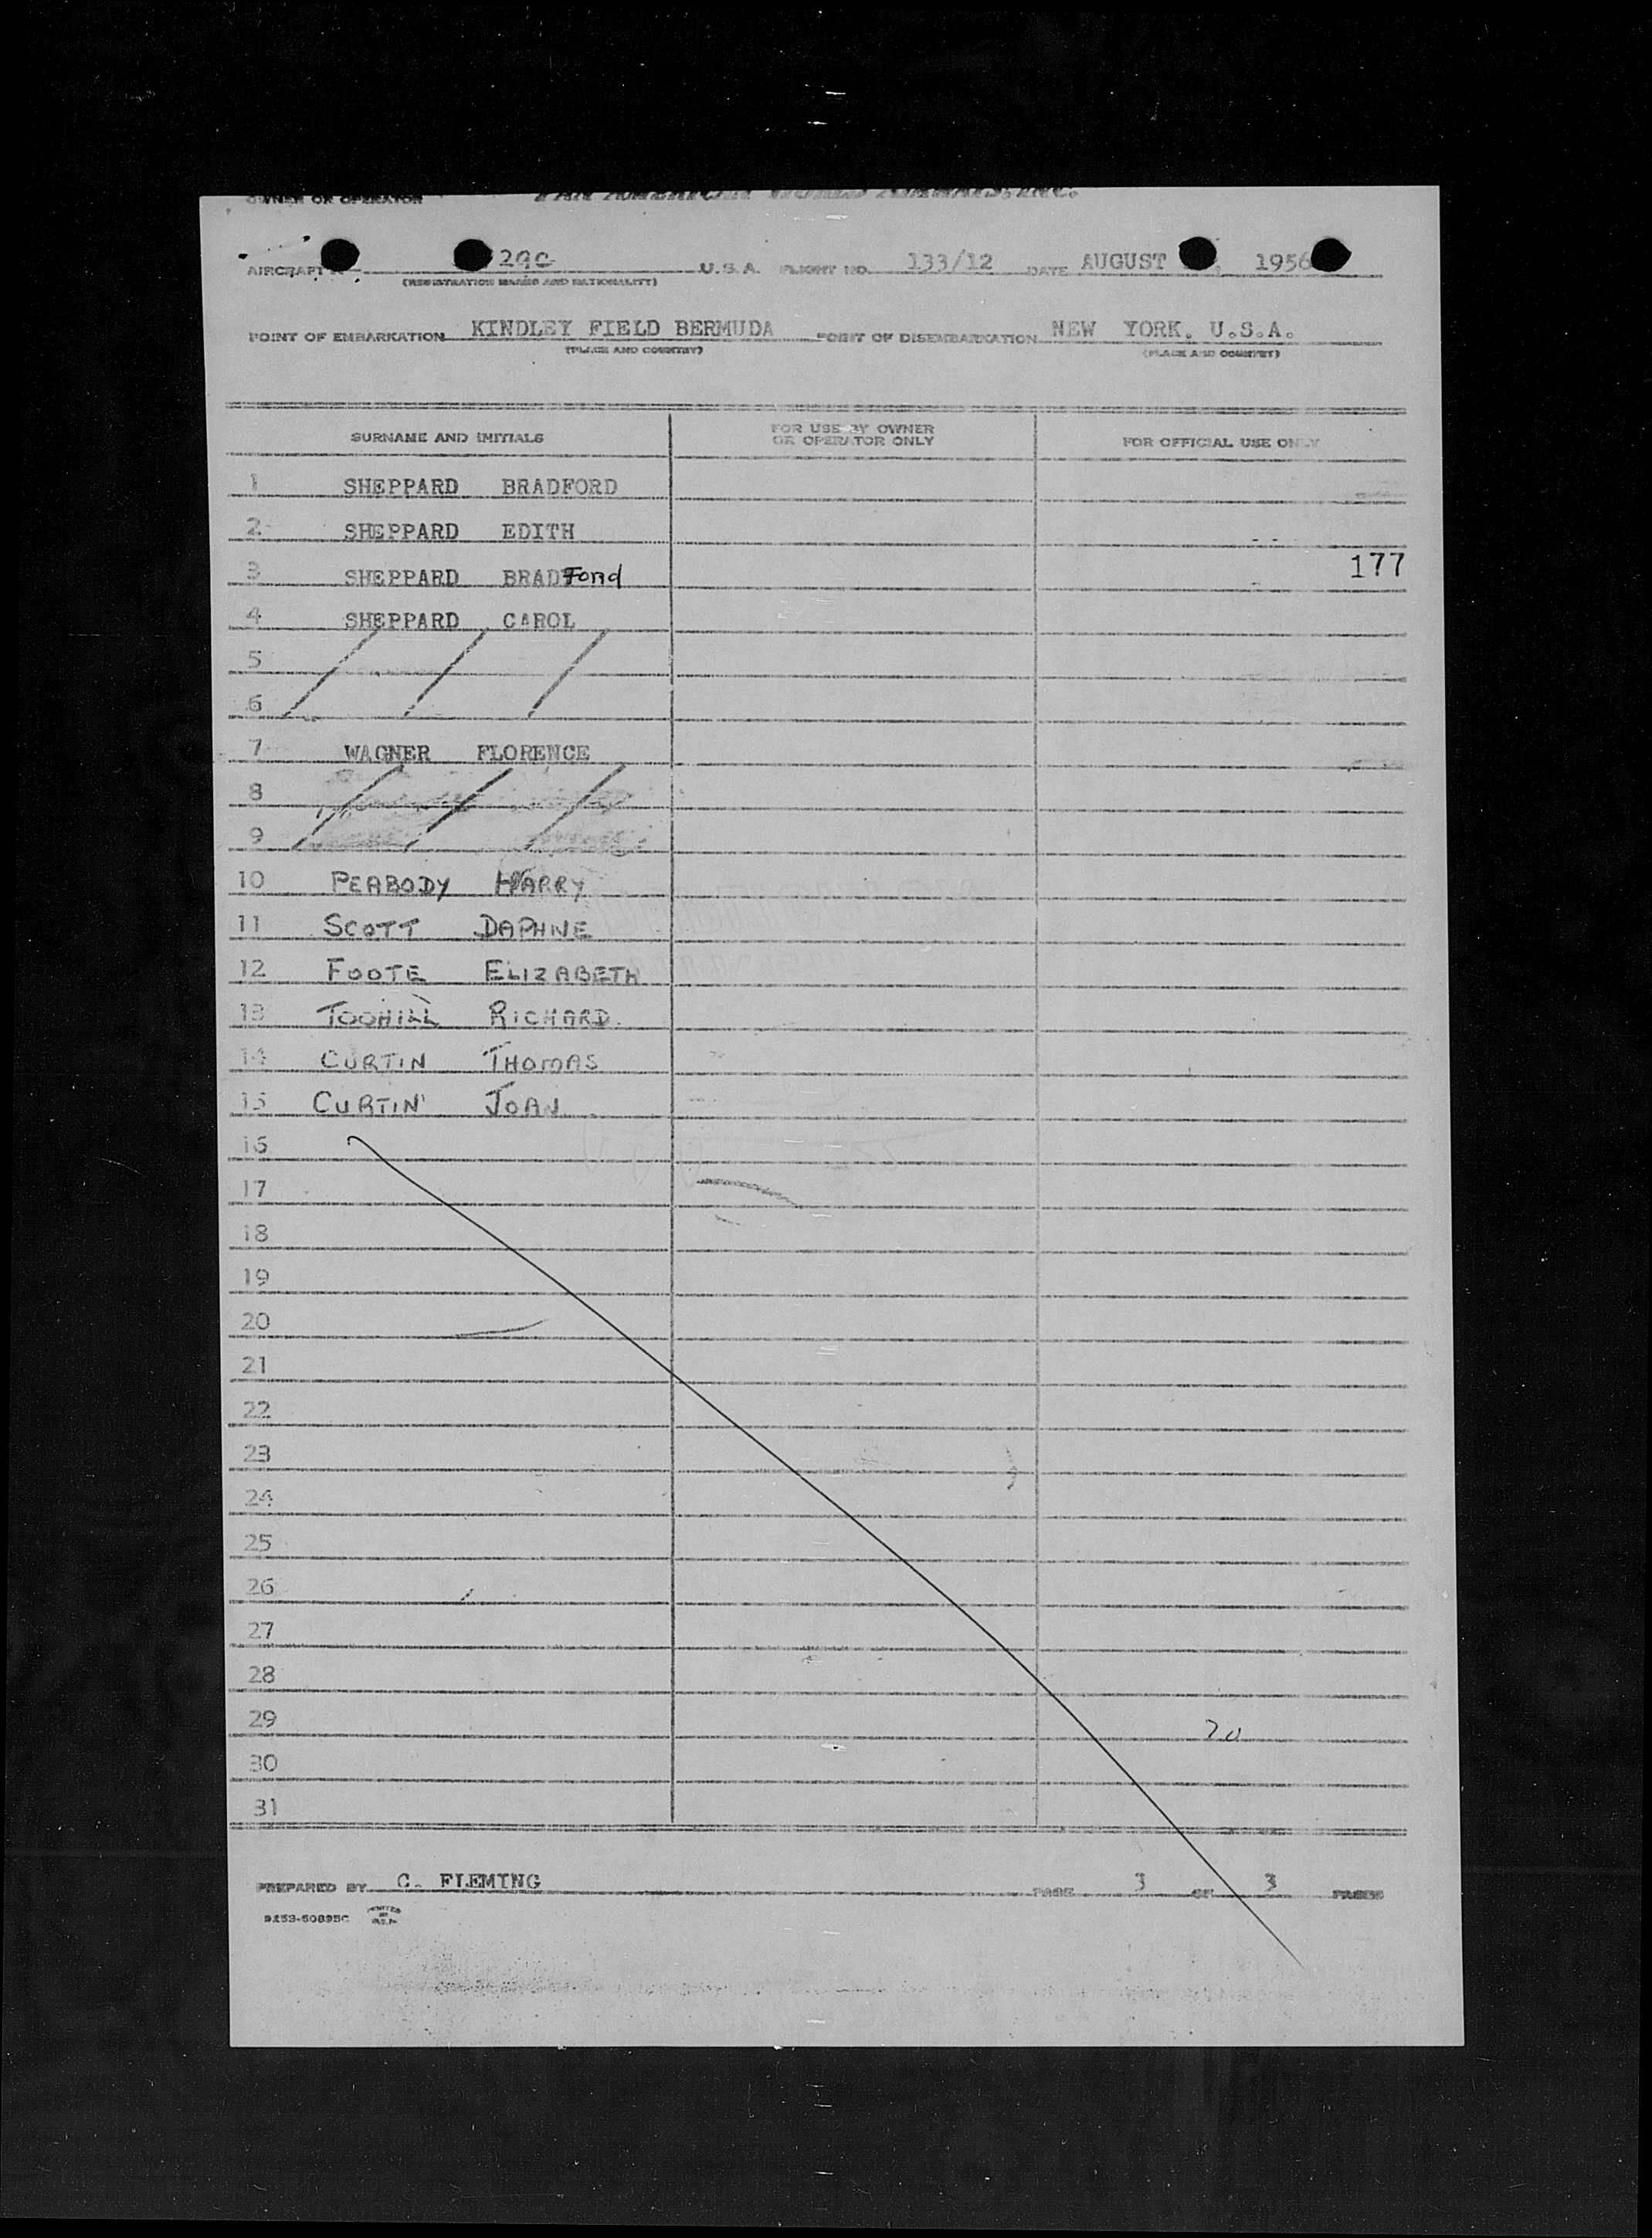 OWNER OR OPERATOR PAN AMERICAN WORLD AIRWAYS, INC.
AIRCRAFT 290 U.S.A. FLIGHT NO. 133/12 DATE AUGUST , 1956
(REGISTRATION MARKS AND NATIONALITY)
POINT OF EMBARKATION KINDLEY FIELD BERMUDA POINT OF DISEMBARKATION NEW YORK. U.S.A.
(PLACE AND COUNTRY) (PLACE AND COUNTRY)
SURNAME AND INITIALS FOR USE BY OWNER OR OPERATOR ONLY FOR OFFICIAL USE ONLY
1 SHEPPARD BRADFORD
2 SHEPPARD EDITH
177
3 SHEPPARD BRADFord
4 SHEPPARD CAROL
5
6
7 WAGNER FLORENCE
8
9
10 PEABODY HARRY
11 SCOTT DAPHNE
12 FOOTE ELIZABETH
13 TOOHILL RICHARD.
14 CURTIN THOMAS
15 CURTIN JOAN
16
17
18
19
20
21
22
23
24
25
26
27
28
29 70
30
31
PREPARED BY C. FLEMING PAGE 3 OF 3 PAGES
9153-50895C PRINTED IN U.S.A.